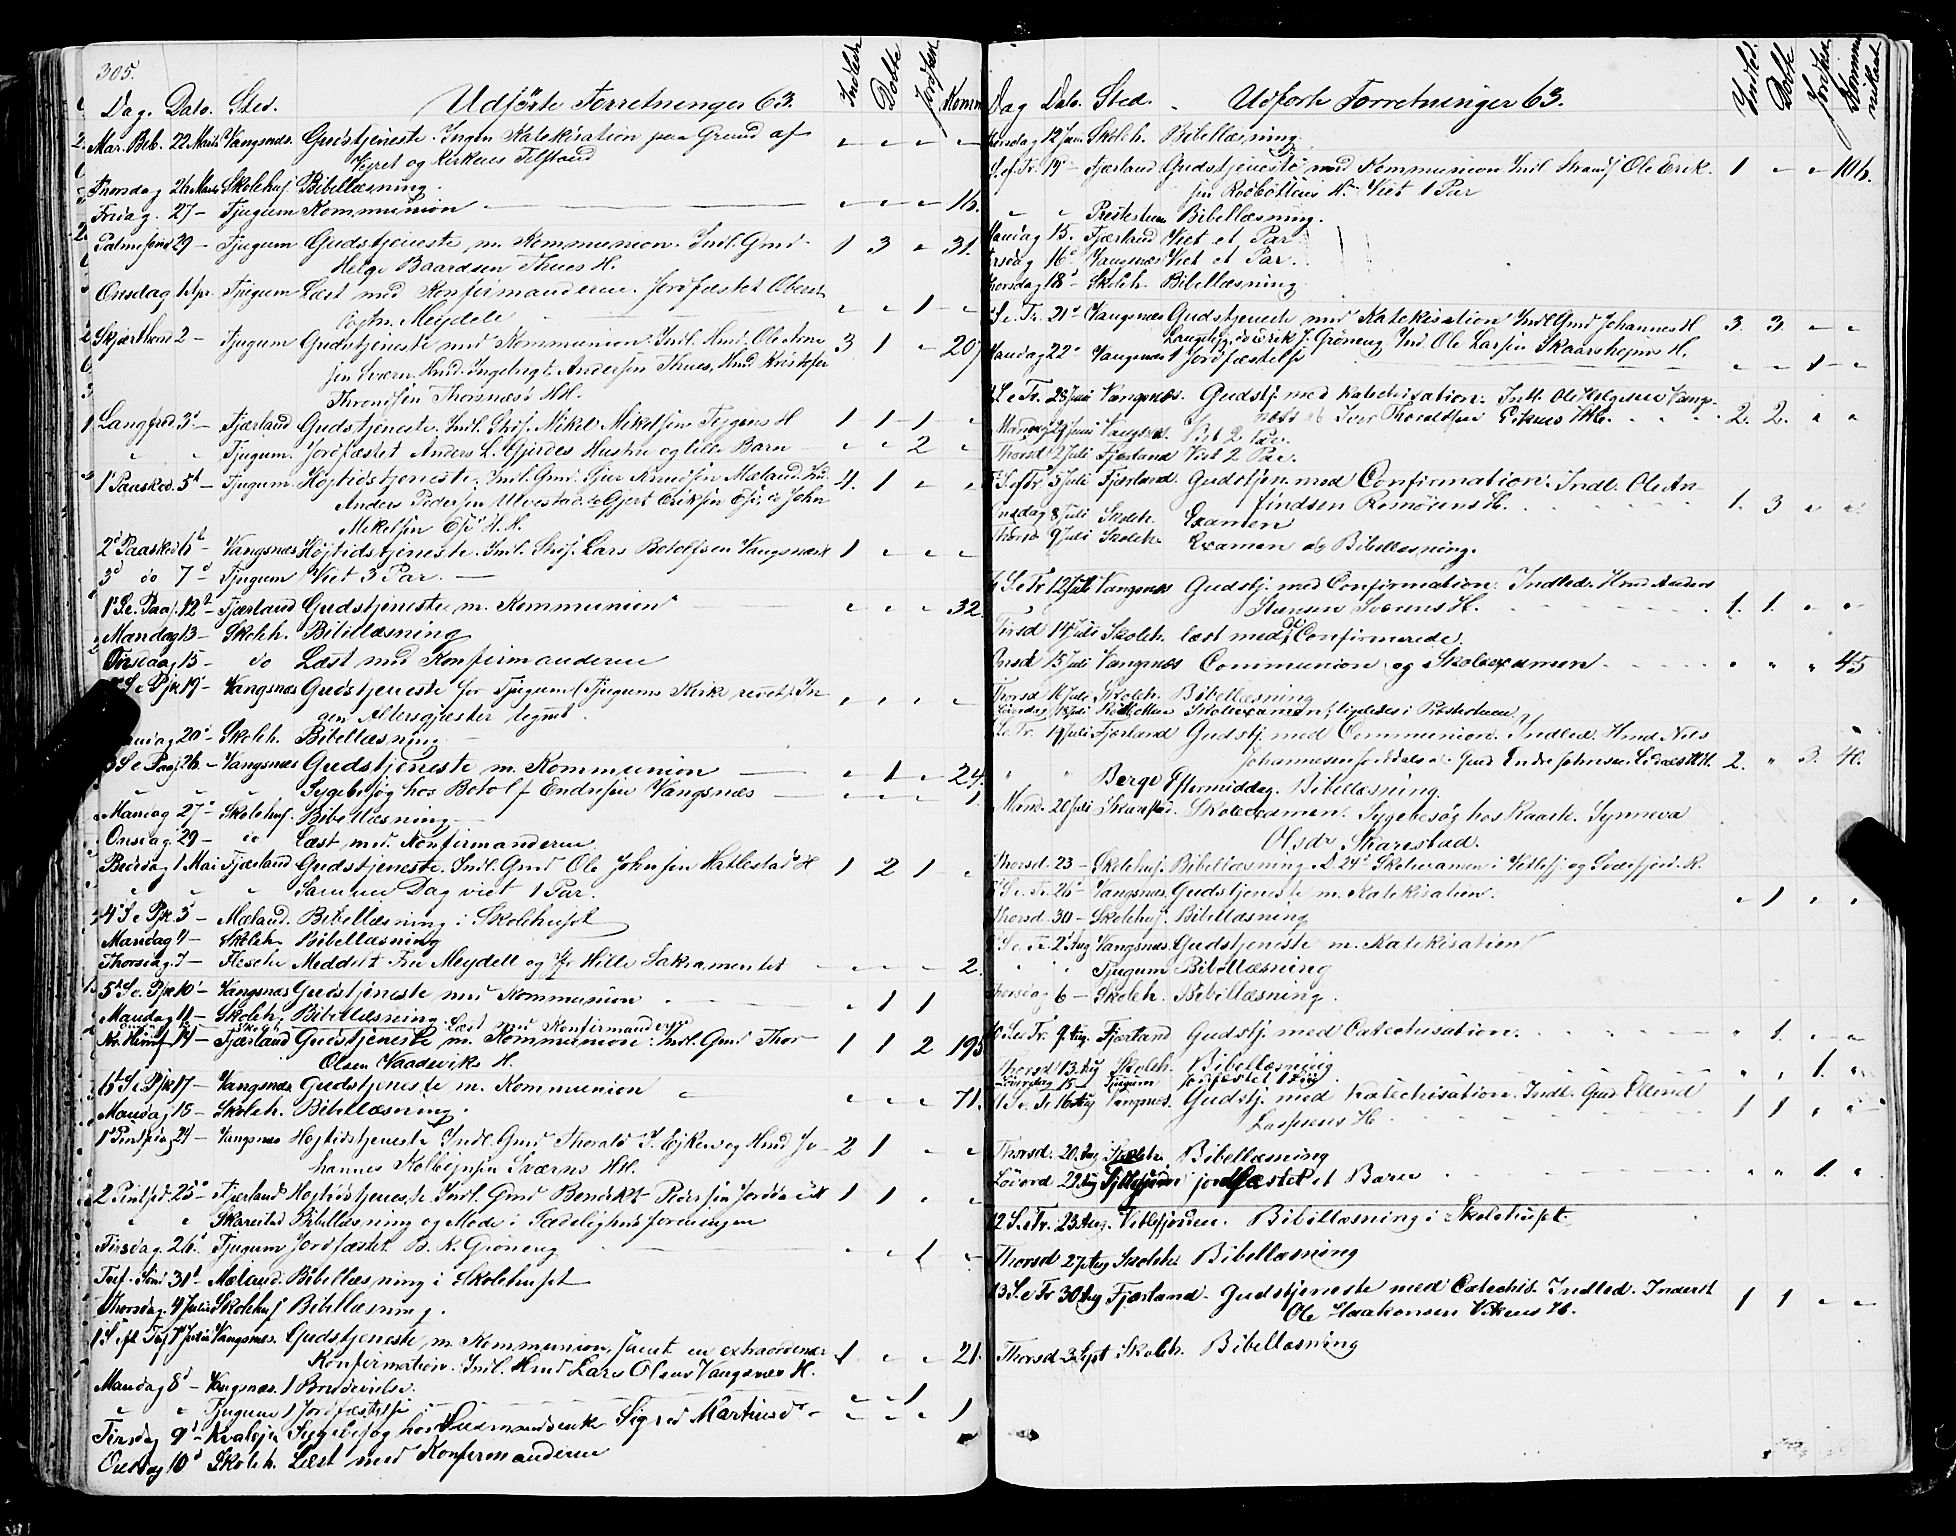 305.
Dag. Dato. Sted. Udförte Forretninger 63. Indledte Döbte Jordfæst Komm
Mar. Beb. 22 Marts Vangsnæs. Gudstjeneste. Ingen Katekisation paa Grund af
Vejret og Kirkens Tilstand
Thorsdag 26 Marts Skolehus Bibellæsning.
Fredag. 27 - Tjugum Kommunion 16.
Palmesönd 29 - Tjugum Gudstjeneste m. Kommunion. Indl. Gmd. 1 3 " 31.
Helge Baardsen Thues H.
Onsdag 1 Apr. Tjugum Læst med Konfirmanderne. Jordfæstet
Meydell " " 1 "
Skjærthorsd 2 - Tjugum Gudstjeneste med Kommunion. Indl. Hmd. Ole 3 1 " 207
sen Sværn. Hmd. Ingebrigt Andersen Thues, Hmd. Kristofer
Throndsen Thornæs HH.
Langfred 3 - Fjærland Gudstjeneste. Indl. Mikel Mikelsen H 1 1 1 "
" " Tjugum. Jordfæstet Anders L. Gjerdes Hustru og lille Barn " " 2 "
1 Paasked. 5 - Tjugum Höjtidstjeneste. Indl. Gmd. Sjur Knudsen Mæland. 4. 1 " "
Anders Pedersen Ulvestad. Gjert Eriksen Ese, John
Mikelsen Ese H.H.
2 Paasked 6 - Vangsnæs Höjtidstjeneste. Indl. Lars Botolfsen Vangsnæs 1 " " "
3 do 7 - Tjugum Viet 3 Par.
1 S. e. Paas. 12 - Fjærland Gudstjeneste m. Kommunion " " " 32.
Mandag 13 - Skoleh. Bibellæsning
15 - do Læst med Konfirmanderne
S e Pjk 19 - Vangsnæs Gudstjeneste for Tjugum (Tjugums Kirke revet). In-
gen Altersgjæster tegnet.
20 - Skoleh. Bibellæsning
S e Paas. 26. - Vangsnæs Gudstjeneste m. Kommunion " 1 " 24.
" " " Sygebesög hos Botolf Endresen Vangsnæs " " " 1
Mandag 27 - Skolehus. Bibellæsning
Onsdag 29 - do Læst med Konfirmanderne
Bededag 1 Mai Fjærland Gudstjeneste. Indl. Gmd. Ole Johnsen Hatlestad H 1 2 1 "
" " " Samme Dag viet 1 Par.
4 S e Pjk. 3 - Mæland. Bibellæsning i Skolehuset
Mandag 4 - Skoleh. Bibellæsning
Thorsdag. 7 - Flesche Meddelt Meydell og Hille Sakramentet 2.
5 S. e. Pjk 10 - Vangsnæs Gudstjeneste med Kommunion " 1 1
Mandag 11 - Skoleh. Bibellæsning.
Læst med Konfirmanderne
Kr. Himf. 14 - Fjærland Gudstjeneste m. Kommunion. Indl. Gmd Thor 1 1 2 195
Olsen H.
6 S e Pjk 17 - Vangsnæs Gudstjeneste m. Kommunion " " " 71.
Mandag 18 - Skoleh. Bibellæsning.
1 Pintsedag 24 - Vangsnæs Höjtidstjeneste. Indl. Gmd Thorald I. og Hmd Jo- 2 1 " "
hannes Kolbejnsen Sværns HH.
2 Pintsed. 25 - Fjærland Höjtidstjeneste. Indl. Gmd Benedikt Pedersen H 1 1 " "
" " Skarestad Bibellæsning og Möde i Sædelighedsforeningen
Tirsdag. 26. Tjugum Jordfæstet B. K. Gröneng " " 1 "
Tref. Sönd 31 - Mæland. Bibellæsning i Skolehuset
Thorsdag. 4 Skolehus Bibellæsning.
1 S ef Tref 7 Vangsnæs. Gudstjeneste m. Kommunion, samt en extraordinær
Konfirmation. Indl. Hmd Lars Olsen Vangsnæs H. 1 " " 21.
Mandag 8 - Vangsnæs. 1 Brudevielse.
" " Tjugum 1 Jordfæstelse " " 1
Tirsdag 9 - Sygebesög hos Sigred Martinsd. " " " 1
Onsdag 10 Skoleh. Læst med Konfirmanderne
Dag Dato. Sted. Udförte Forretninger 63. Indled. Döbte Jordfæst. Kommunikant
Thorsdag 12 Skoleh. Bibellæsning.
S. ef Tr. 14 - Fjærland Gudstjeneste med Kommunion Indl. Ole Erik- 1 " " 106.
sen H. Viet 1 Par
" " Bibellæsning.
Mandag 15. Fjærland Viet et Par
Tirsdag 16 Vangsnæs Viet et Par.
Thorsdag 18 - Skoleh. Bibellæsning
S. e. Tr. 21 - Vangsnæs Gudstjeneste med Katekisation Indl. Gmd Johannes H 3. 3. " "
Erik J. Gröneng. Ole Larsen H.
Mandag 22 - Vangsnæs 1 Jordfæstelse " " 1 "
S. e Tr. 28 Juni Vangsnæs. Gudstj. med Katechisation. Indl. Ole Helgesen Vangs-
næs Iver Thoraldsen HH. 2. 2. " "
Mandag 29 Juni Vangsnæs Viet 2 Par.
Thorsd 2 Juli Fjærland Viet 2 Par.
S. ef Tr. 5 Juli Fjærland. Gudstjen. med Confirmation. Indl. Ole An-
findsen Romörens H. 1. 3 " "
Onsdag 8 Juli Skoleh. Examen
Thorsd 9 Juli Skoleh. Examen og Bibellæsning.
6 S. e Tr 12 Juli Vangsnæs Gudstj. med Confirmation. Indled. Hmd Anders
Stensen Sværens H. 1. 1. " "
Tirsd 14 Juli Skoleh. læst med de Confirmerede.
Onsd 15 Juli Vangsnæs Communion og Skoleexamen " " " 45
Thorsd 16 Juli Skoleh. Bibellæsning
Skoleexamen, ligeledes i
S. e Tr. 19 Juli Fjærland Gudstj. med Communion. Indled. Hmd Nels
Johannesen Gmd Endre Johnsen HH. 2. " 3. 40.
" " Berge Eftermiddag. Bibellæsning
Mand. 20 Juli Skarestad. Skoleexamen. Sygebesög hos Synneva
Olsdr Skarestad.
Thorsd. 23 - Skolehus. Bibellæsning D. 24 Skoleexamen i Vetlefj. og Sværefjord. K.
S. e. Tr. 26 - Vangsnæs. Gudstjeneste m. Katekisation. " 1 " "
Thorsd. 30 - Skolehus. Bibellæsning
S e. Tr. 2 Aug Vangsnæs Gudstjeneste m. Katekisation
" " Tjugum Bibellæsning
Thorsdag 6 - Skoleh. Bibellæsning.
10 S. e. Tr. 9 Aug. Fjærland Gudstj. med Catechisation. " 1. " "
Thorsd 13. Aug Skoleh. Bibellæsning
Löverdag 15 - Tjugum Jordfæstet 1 " " 1. "
11 S. e. Tr 16 Aug Vangsnæs. Gudstj. med Katechisation. Indl. Gmd Ellend
Lassesens H. 1 1 " "
Thorsd. 20. Aug Skoleh. Bibellæsning
Löverd 22 Aug jordfæstet et Barn " " 1. "
12 S. e Tr. 23 Aug. Vetlefjorden. Bibellæsning i Skolehuset.
Thorsd 27 Aug Skoleh. Bibellæsning
13 S. e Tr 30 Aug Fjærland. Gudstjeneste med Catechis. Indled. Inderst
Ole Haakonsen Vikens H. 1 1 " "
Thorsd 3 Sept Skoleh. Bibellæsning